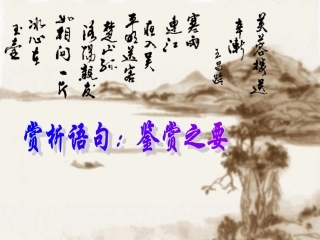 芙蓉楼送
辛渐
王昌龄
寒雨
連江
夜入吴
平明送客
楚山孤
洛陽親友
如相问一片
冰心在
玉壺
赏析语句：鉴赏之要